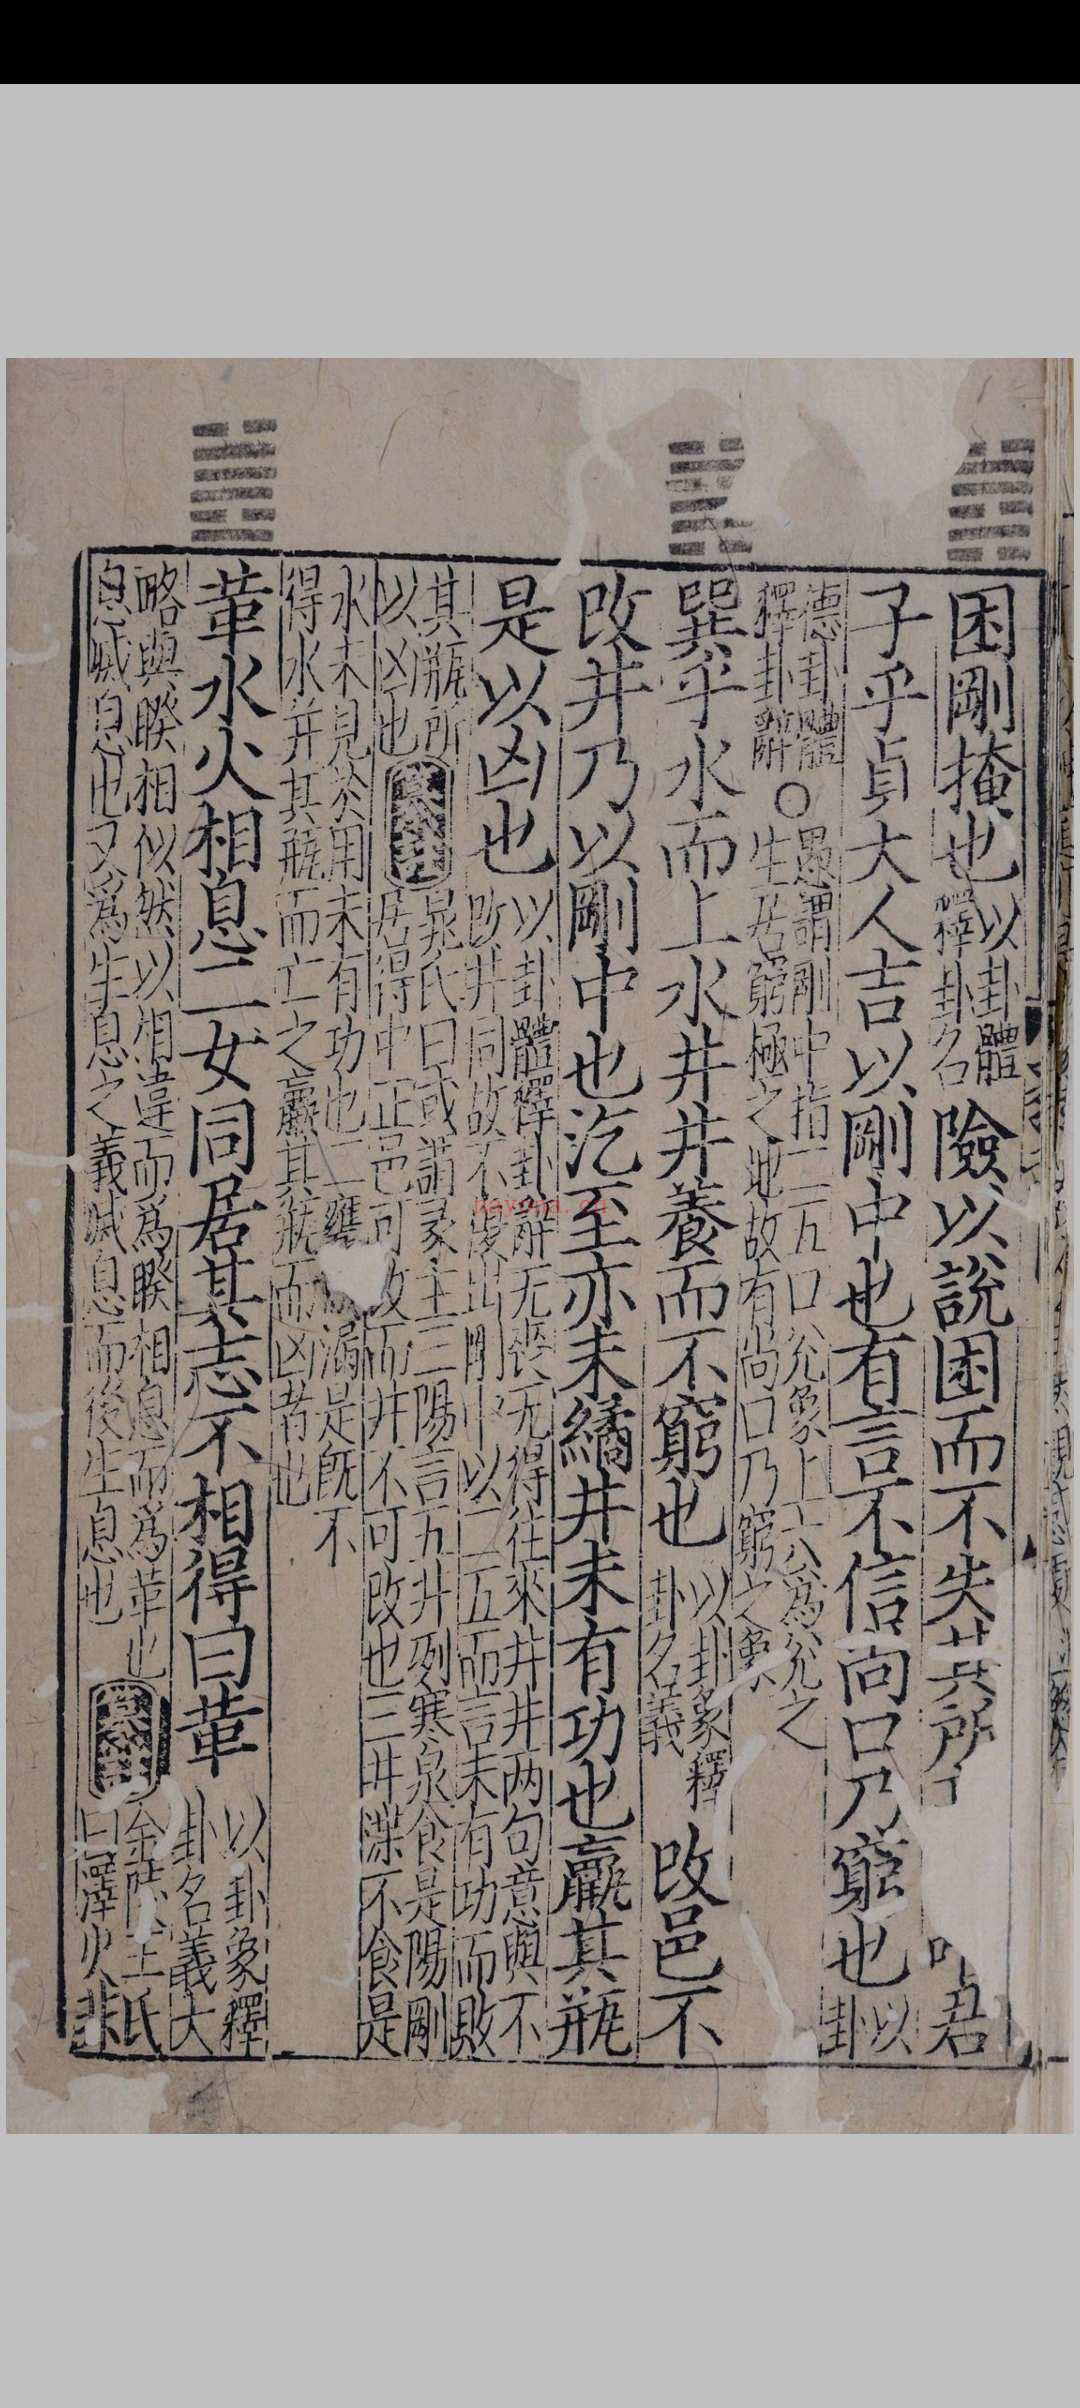 困剛掩也
以卦體
釋卦名
險以說困而不失其所
君
子乎貞大人吉以剛中也有言不信尚口乃窮也
以
卦
德卦體
釋卦辭
○
愚謂剛中指二五口兌象上六為兌之
生居窮極之地故有尚口乃窮之象
巽乎水而上水井井養而不窮也
以卦象釋
卦名義
改邑不
改井乃以剛中也汔至亦未繘井未有功也羸其瓶
是以凶也
以卦體釋卦辭无喪无得往來井井两句意與不
改井同故不復出剛中以二五而言未有功而敗
其瓶所
以凶也
纂註
晁氏曰或謂彖主三陽言五井冽寒泉食是陽剛
居得中正邑可改而井不可改也三井渫不食是
水未見於用未有功也二甕漏是既不
得水并其瓶而亡之羸其瓶而凶者也
革水火相息二女同居其志不相得曰革
以卦象釋
卦名義大
略與睽相似然以相違而為睽相息而為革也
息滅息也又為生息之義滅息而後生息也
纂註
金陵王氏
曰澤火非